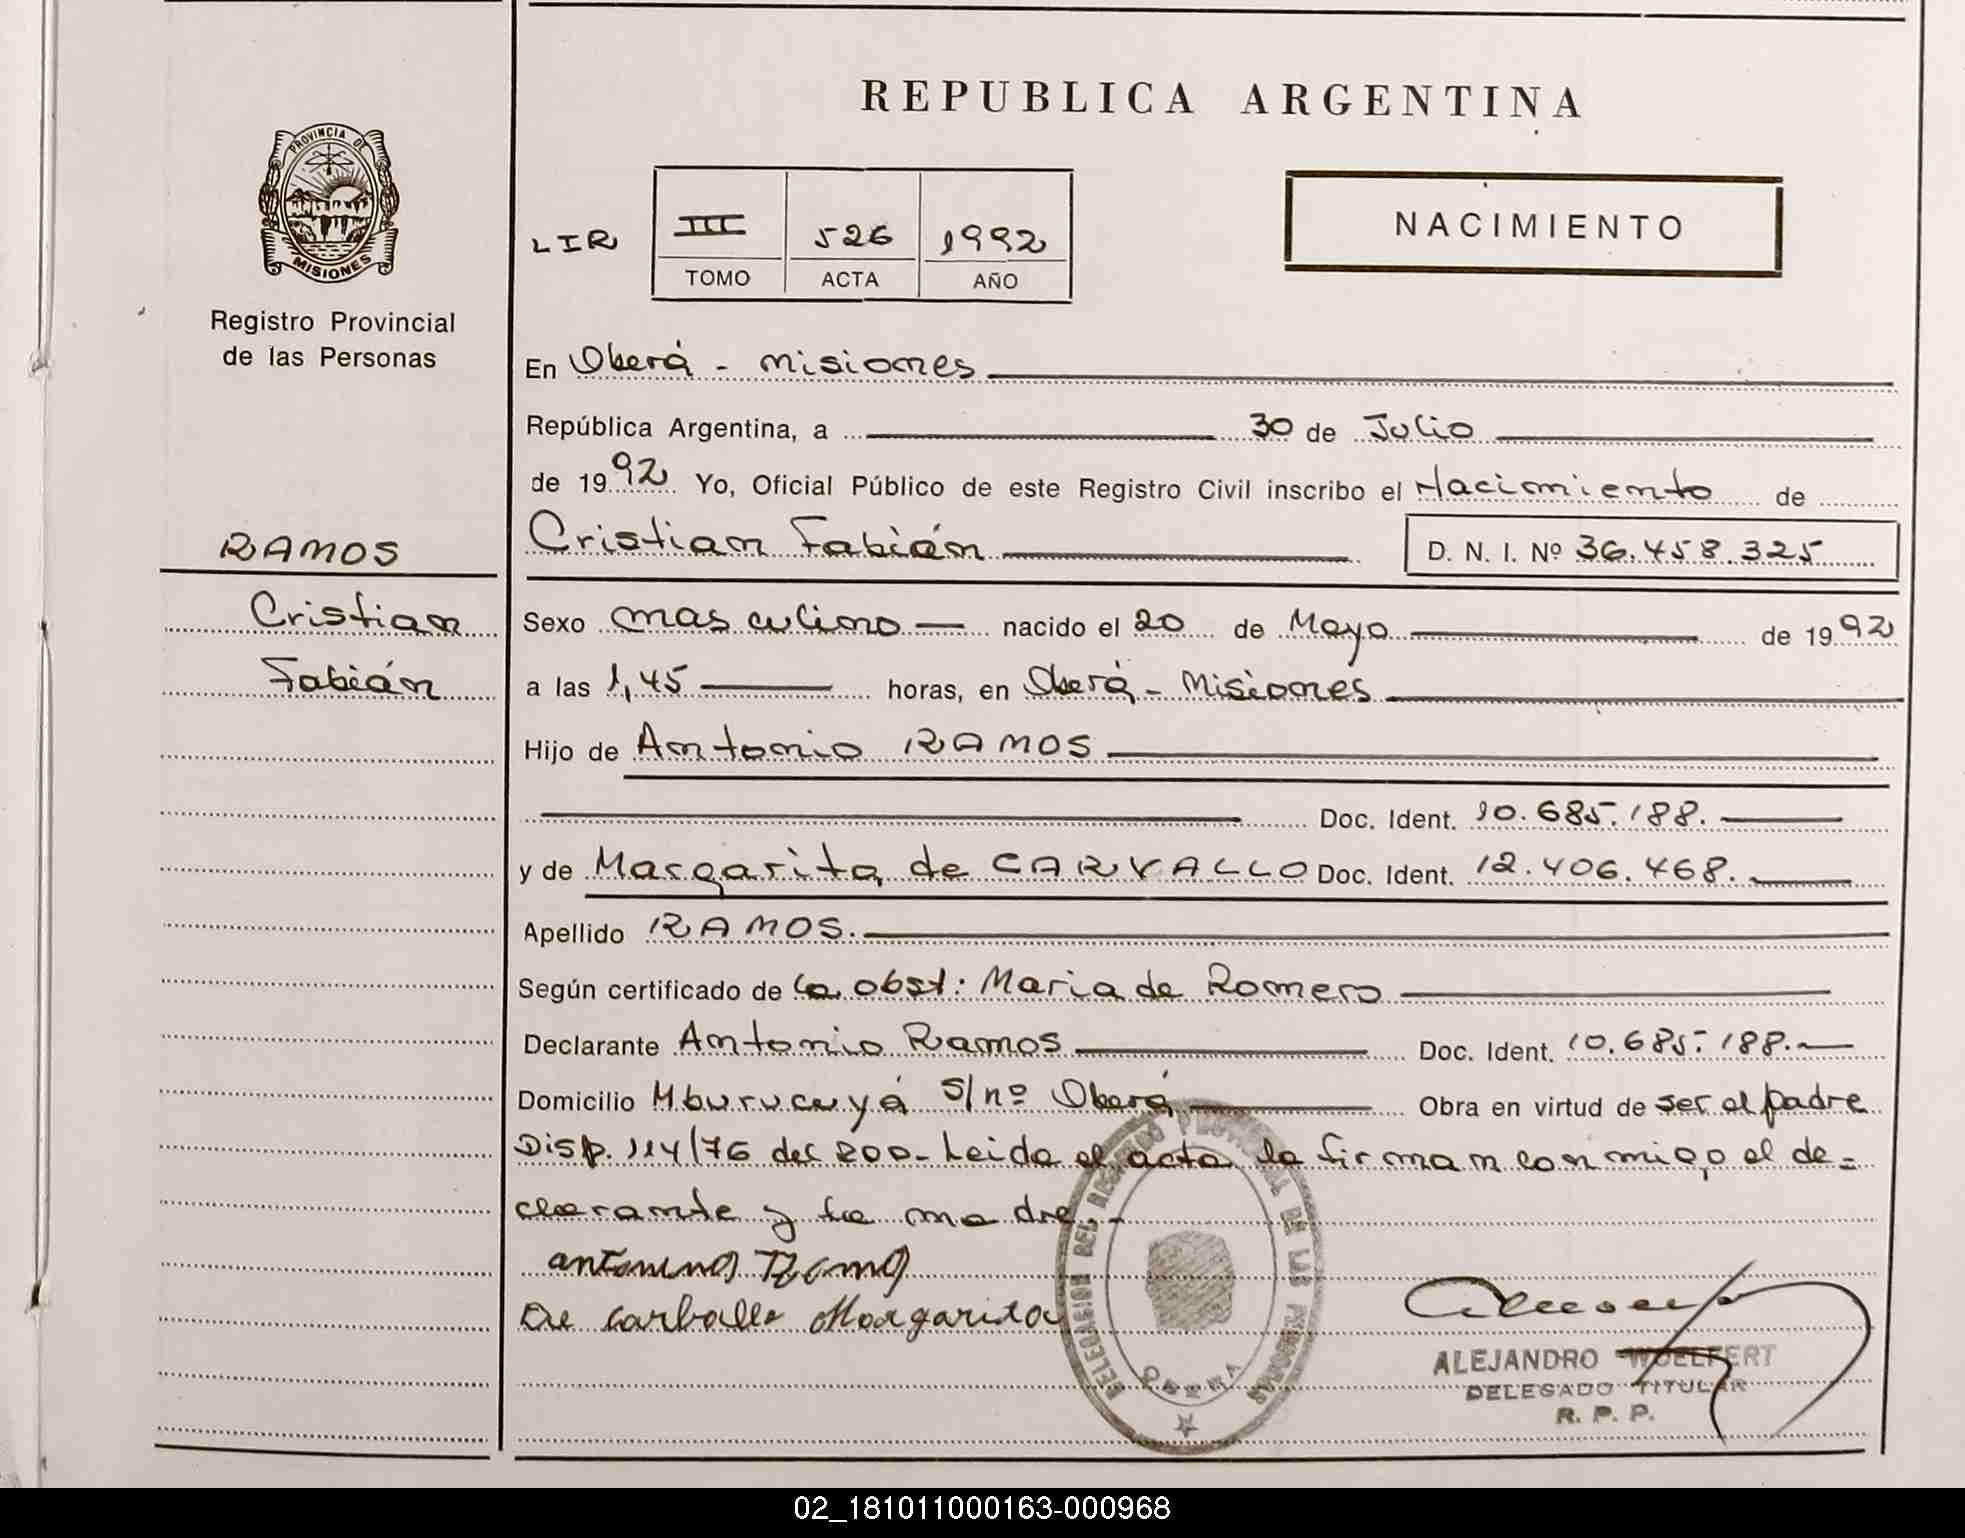 REPUBLICA ARGENTINA
PROVINCIA DE
MISIONES
Registro Provincial
de las Personas
LIR
III 526 1992
TOMO ACTA AÑO
NACIMIENTO
En Oberá - Misiones
República Argentina, a 30 de Julio
de 1992 Yo, Oficial Público de este Registro Civil inscribo el Nacimiento de
RAMOS
Cristian Fabián
D. N. I. Nº 36.458.325
Cristian
Fabián
Sexo masculino nacido el 20 de Mayo de 1992
a las 1,45 horas, en Oberá - Misiones
Hijo de Antonio RAMOS
Doc. Ident. 10.685.188.
y de Margarita de CARVALLO Doc. Ident. 12.406.468.
Apellido RAMOS.
Según certificado de la obst: Maria de Romero
Declarante Antonio Ramos Doc. Ident. 10.685.188.
Domicilio Mburucuyá S/nº Oberá Obra en virtud de ser el padre
Disp. 114/76 del RPP- Leida el acta la firman conmigo el de=
clarante y la madre.-
antonino Ramo
De carballo Margarita
DELEGACION DEL REGISTRO PROVINCIAL DE LAS PERSONAS
OBERA
ALEJANDRO WOELFERT
DELEGADO TITULAR
R. P. P.
02_181011000163-000968